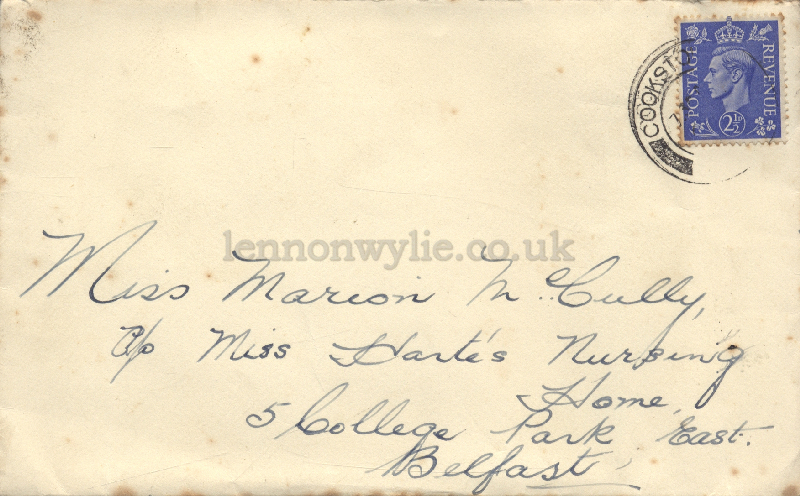 POSTAGE REVENUE
2½
COOKST
lennonwylie.co.uk
Miss Marion McCully,
c/o Miss Harte's Nursing
Home,
5 College Park East.
Belfast,